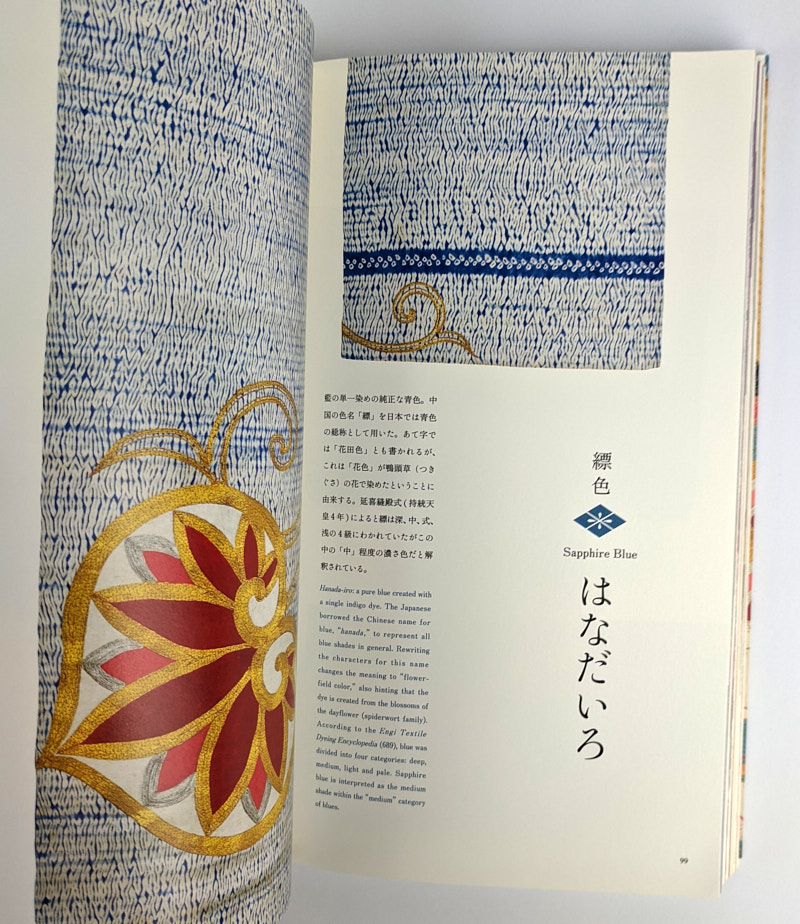 藍の単一染めの純正な青色。中
国の色名「縹」を日本では青色
の総称として用いた。あて字で
は「花田色」とも書かれるが、
これは「花色」が鴨頭草（つき
ぐさ）の花で染めたということに
由来する。延喜縫殿式(持統天
皇4年)によると縹は深、中、式、
浅の4級にわかれていたがこの
中の「中」程度の濃さ色だと解
釈されている。
Hanada-iro: a pure blue created with
a single indigo dye. The Japanese
borrowed the Chinese name for
blue, "hanada," to represent all
blue shades in general. Rewriting
the characters for this name
changes the meaning to "flower-
field color," also hinting that the
dye is created from the blossoms of
the dayflower (spiderwort family).
According to the Engi Textile
Dyeing Encyclopedia (689), blue was
divided into four categories: deep,
medium, light and pale. Sapphire
blue is interpreted as the medium
shade within the "medium" category
of blues.
縹色
Sapphire Blue
はなだいろ
99